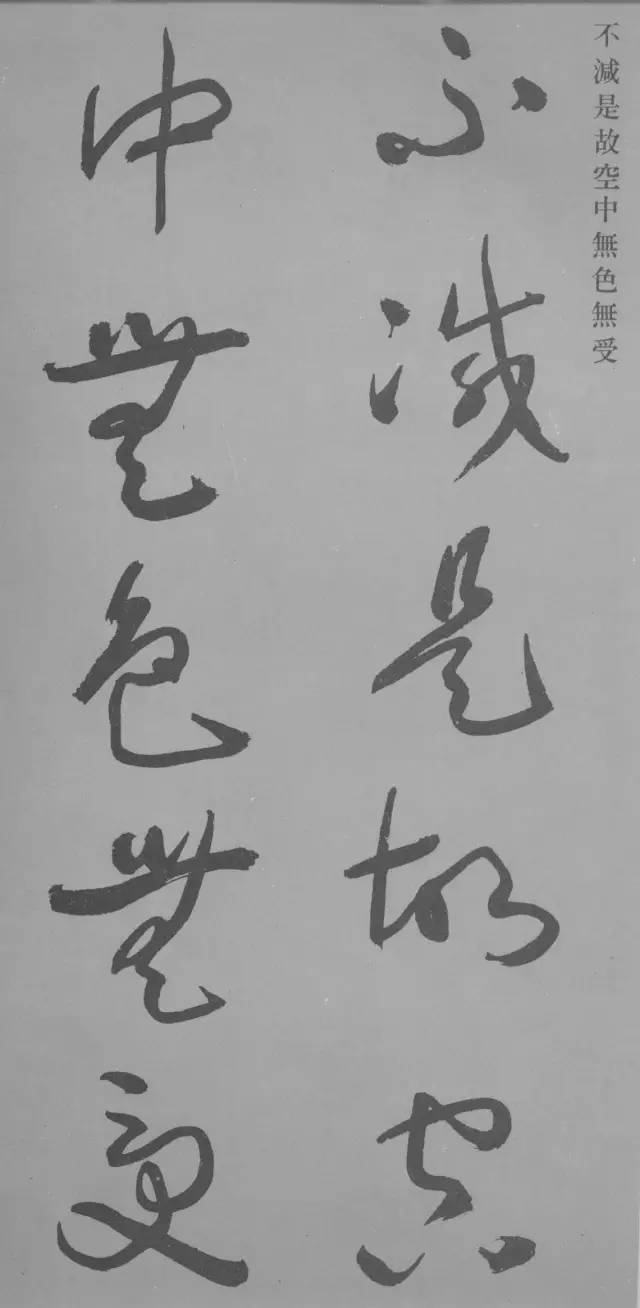 不減是故空中無色無受
不減是故空
中無色無受